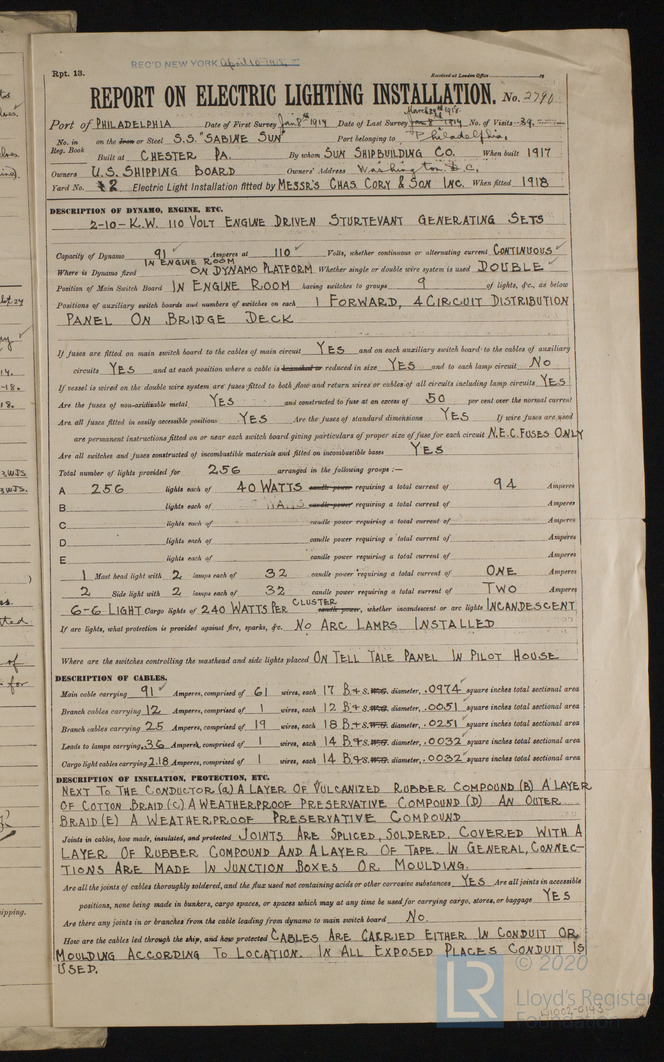 REC'D NEW YORK April 10 1918
Rpt. 13.
Received at London Office
REPORT ON ELECTRIC LIGHTING INSTALLATION. No. 2790
Port of PHILADELPHIA Date of First Survey Jan 8th 1917 Date of Last Survey March 29th 1918. Jan 8 1917 No. of Visits 29
No. in Reg. Book on the Iron or Steel S.S. "SABINE SUN" Port belonging to Philadelphia.
Built at CHESTER PA. By whom SUN SHIPBUILDING CO. When built 1917
Owners U.S. SHIPPING BOARD Owners' Address Washington D.C.
Yard No. 2 Electric Light Installation fitted by MESSR'S CHAS. CORY & SON INC. When fitted 1918
DESCRIPTION OF DYNAMO, ENGINE, ETC.
2-10-K.W. 110 VOLT ENGINE DRIVEN STURTEVANT GENERATING SETS
Capacity of Dynamo 91 Amperes at 110 Volts, whether continuous or alternating current CONTINUOUS
Where is Dynamo fixed IN ENGINE ROOM ON DYNAMO PLATFORM Whether single or double wire system is used DOUBLE
Position of Main Switch Board IN ENGINE ROOM having switches to groups 9 of lights, &c., as below
Positions of auxiliary switch boards and numbers of switches on each 1 FORWARD, 4 CIRCUIT DISTRIBUTION
PANEL ON BRIDGE DECK
If fuses are fitted on main switch board to the cables of main circuit YES and on each auxiliary switch board to the cables of auxiliary
circuits YES and at each position where a cable is branched or reduced in size YES and to each lamp circuit NO
If vessel is wired on the double wire system are fuses fitted to both flow and return wires or cables of all circuits including lamp circuits YES
Are the fuses of non-oxidizable metal YES and constructed to fuse at an excess of 50 per cent over the normal current
Are all fuses fitted in easily accessible positions YES Are the fuses of standard dimensions YES If wire fuses are used
are permanent instructions fitted on or near each switch board giving particulars of proper size of fuse for each circuit N.E.C. FUSES ONLY
Are all switches and fuses constructed of incombustible materials and fitted on incombustible bases YES
Total number of lights provided for 256 arranged in the following groups :—
A 256 lights each of 40 WATTS candle power requiring a total current of 94 Amperes
B lights each of WATTS candle power requiring a total current of Amperes
C lights each of candle power requiring a total current of Amperes
D lights each of candle power requiring a total current of Amperes
E lights each of candle power requiring a total current of Amperes
1 Mast head light with 2 lamps each of 32 candle power requiring a total current of ONE Amperes
2 Side light with 2 lamps each of 32 candle power requiring a total current of TWO Amperes
6-6 LIGHT Cargo lights of 240 WATTS PER CLUSTER candle power, whether incandescent or arc lights INCANDESCENT
If arc lights, what protection is provided against fire, sparks, &c. NO ARC LAMPS INSTALLED
Where are the switches controlling the masthead and side lights placed ON TELL TALE PANEL IN PILOT HOUSE
DESCRIPTION OF CABLES.
Main cable carrying 91 Amperes, comprised of 61 wires, each 17 B.&S. W.G. diameter, .0974 square inches total sectional area
Branch cables carrying 12 Amperes, comprised of 1 wires, each 12 B.&S. W.G. diameter, .0051 square inches total sectional area
Branch cables carrying 25 Amperes, comprised of 19 wires, each 18 B.&S. W.G. diameter, .0251 square inches total sectional area
Leads to lamps carrying .36 Amperes, comprised of 1 wires, each 14 B.&S. W.G. diameter, .0032 square inches total sectional area
Cargo light cables carrying 2.18 Amperes, comprised of 1 wires, each 14 B.&S. W.G. diameter, .0032 square inches total sectional area
DESCRIPTION OF INSULATION, PROTECTION, ETC.
NEXT TO THE CONDUCTOR (a) A LAYER OF VULCANIZED RUBBER COMPOUND (B) A LAYER
OF COTTON BRAID (C) A WEATHERPROOF PRESERVATIVE COMPOUND (D) AN OUTER
BRAID (E) A WEATHERPROOF PRESERVATIVE COMPOUND
Joints in cables, how made, insulated, and protected JOINTS ARE SPLICED, SOLDERED, COVERED WITH A
LAYER OF RUBBER COMPOUND AND A LAYER OF TAPE. IN GENERAL, CONNEC-
TIONS ARE MADE IN JUNCTION BOXES OR MOULDING.
Are all the joints of cables thoroughly soldered, and the flux used not containing acids or other corrosive substances YES Are all joints in accessible
positions, none being made in bunkers, cargo spaces, or spaces which may at any time be used for carrying cargo, stores, or baggage YES
Are there any joints in or branches from the cable leading from dynamo to main switch board NO.
How are the cables led through the ship, and how protected CABLES ARE CARRIED EITHER IN CONDUIT OR
MOULDING ACCORDING TO LOCATION. IN ALL EXPOSED PLACES CONDUIT IS
USED.
LR © 2020
Lloyd's Register
Foundation